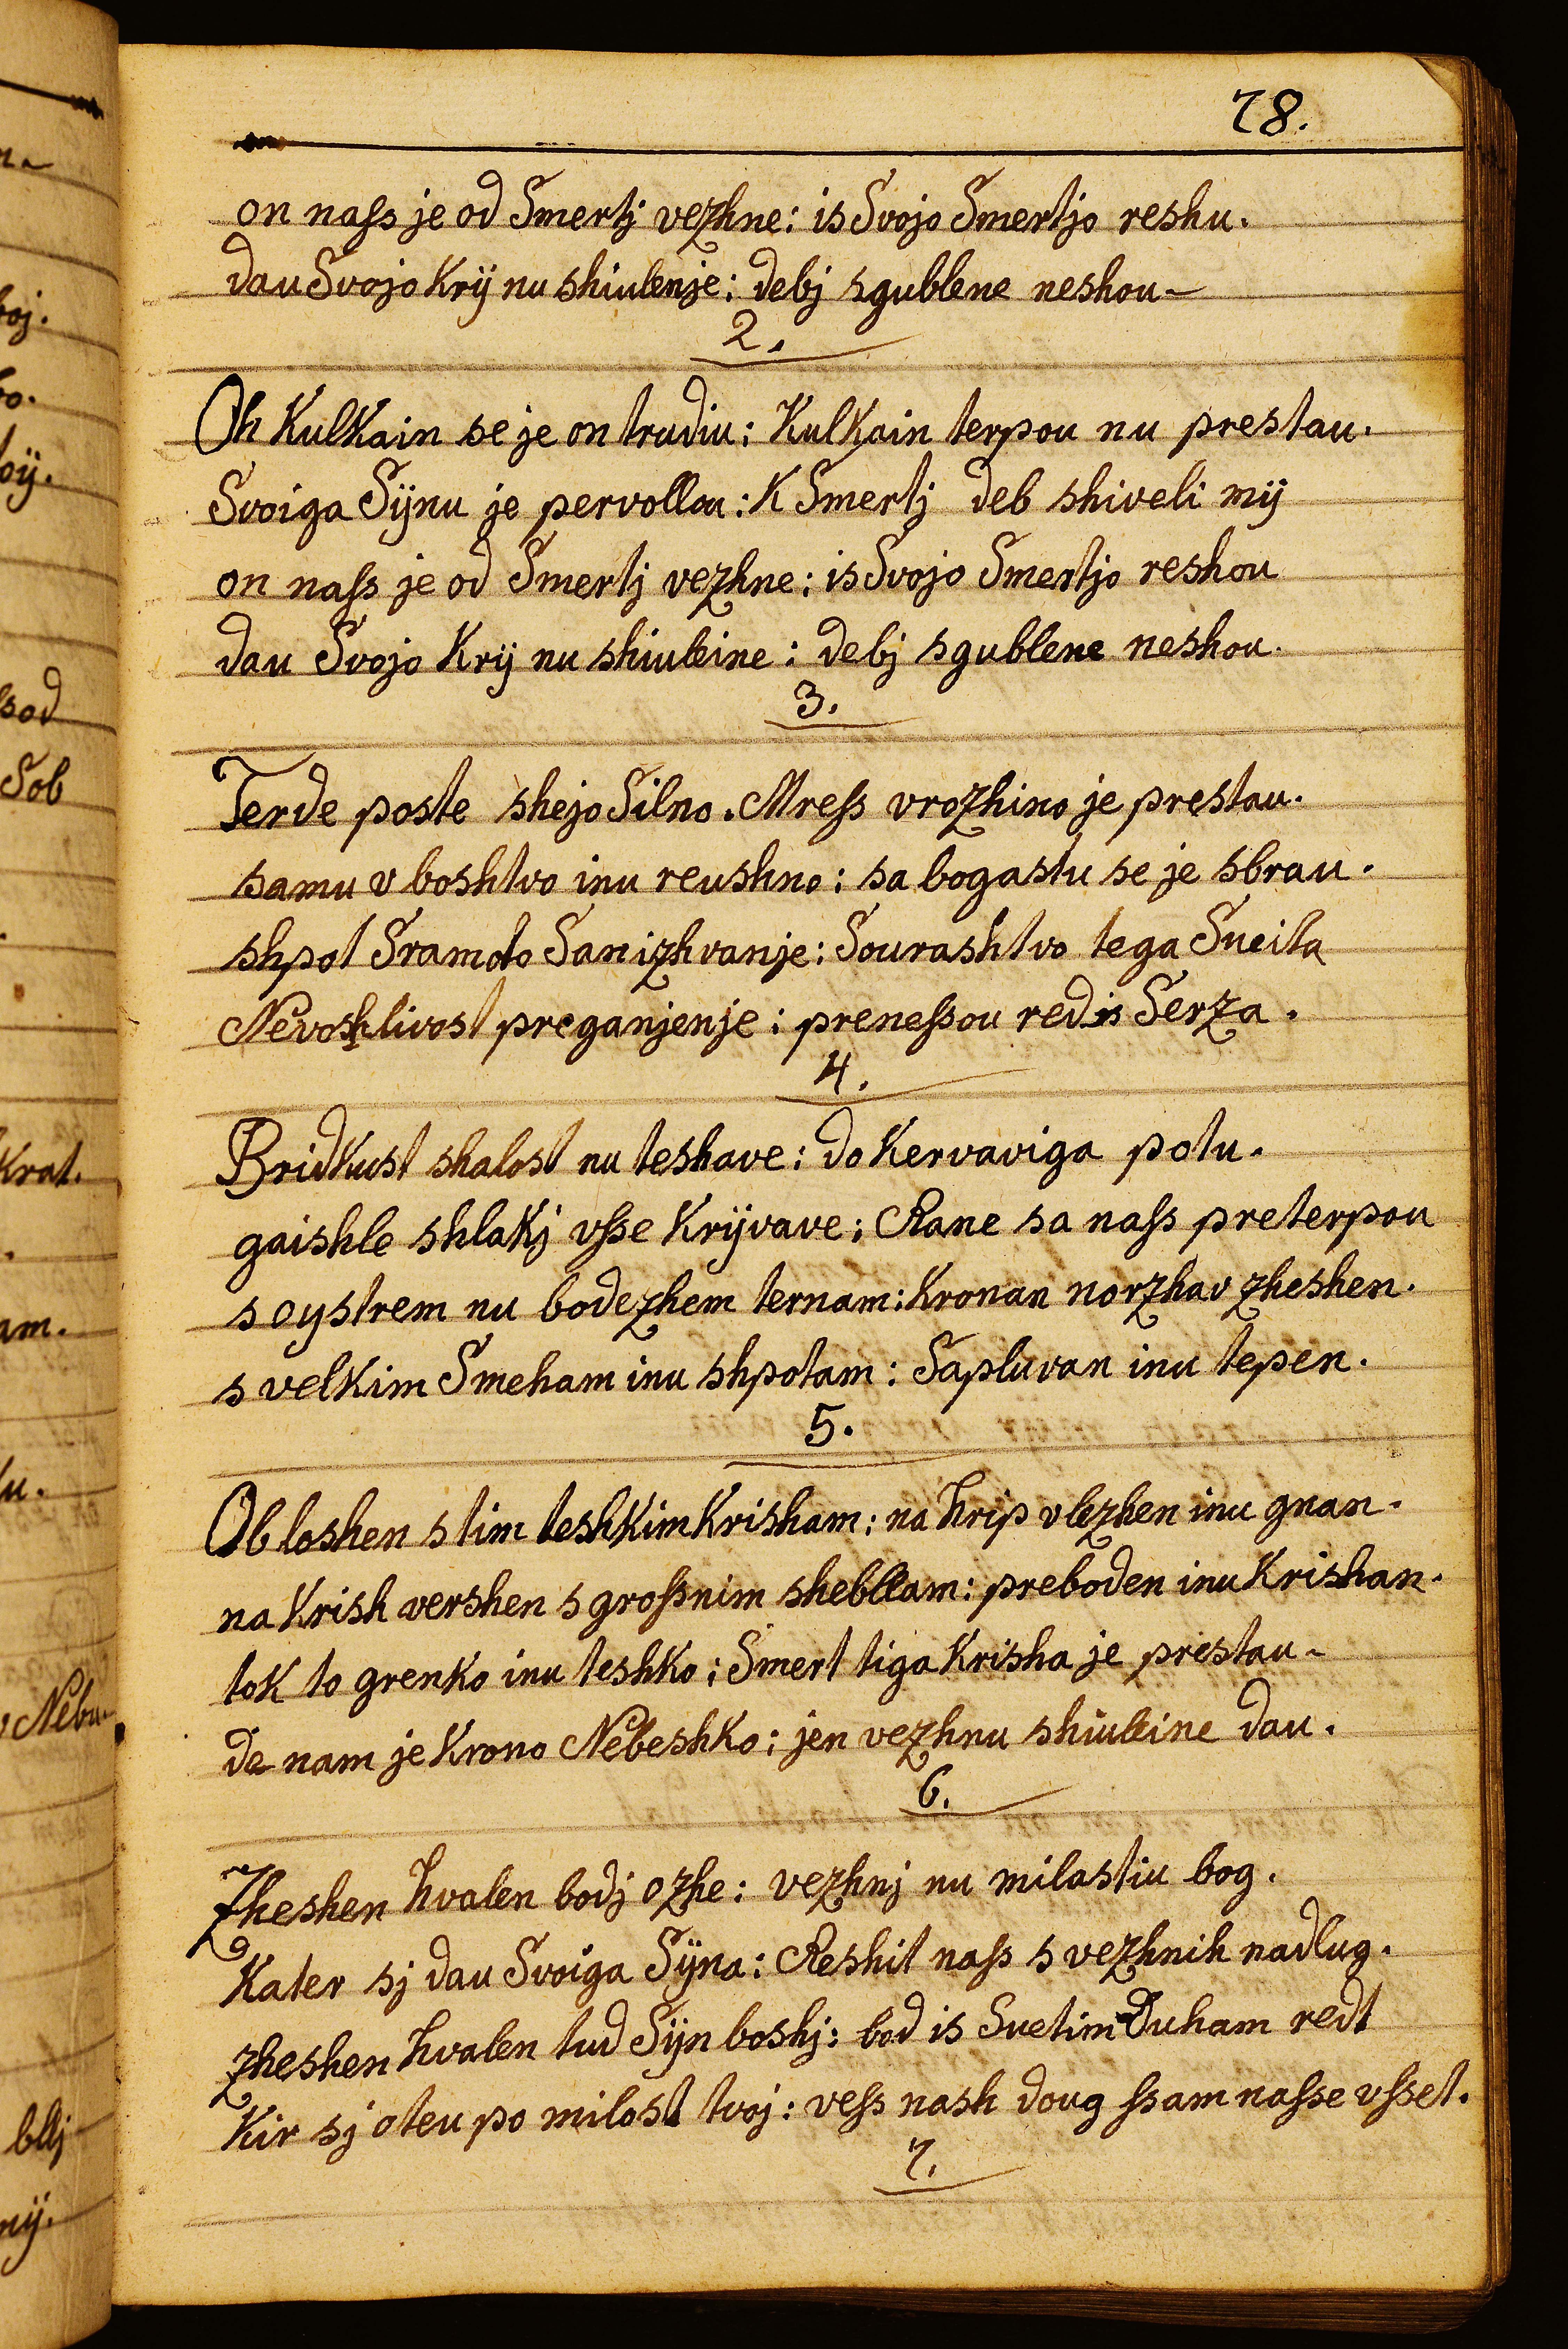 78.
on naſs je od Smertj vezhne: is Svojo Smertjo reshu.
dau Svojo Krÿ nu shiulenje: debj sgublene neshou-
2.
Oh KulKain se je on trudiu: KulKain terpou nu prestau.
Svoiga Sÿnu je pervollou: K Smertj deb shiveli mÿ
on naſs je od Smertj vezhne: is Svojo Smertjo reshou
dau Svojo Krÿ nu shiuleine: debj sgublene neshou.
3.
Terde poste shejo Silno. Mreſs vrozhino je prestau.
samu v boshtvo inu reushno: sa bogastu se je sbrau.
shpot Sramoto Sanizhvanje: Sourashtvo tega Sueita
Nevoshlivost preganjenje: preneſsou red is Serza.
4.
Bridkust shalost nu teshave: do Kervaviga potu.
gaishle shlakj vſse Krÿvave: Rane sa naſs preterpou
s oystrem nu bodezhem ternam: Kronan norzhav zheshen.
s velkim Smeham inu shpotam: Sapluvan inu tepen.
5.
Obloshen s tim teshkim Krisham: na hrip vlezhen inu gnan.
na Krish vershen s groſsnim shebllam: preboden inu Krishan.
tok to grenko inu teshko: Smert tiga Krisha je prestau-
de nam je Krono Nebeshko: jen vezhnu shiuleine dau.
6.
Zheshen hvalen bodj ozhe: vezhnj nu milastiu bog.
Kater sj dau Svoiga Sÿna: Reshit naſs s vezhnih nadlug.
zheshen hvalen tud Sÿn boshj: bod is Suetim Duham redt
Kir sj oteu po milost tvoj: veſs nash doug ſsam naſse vſset.
7.